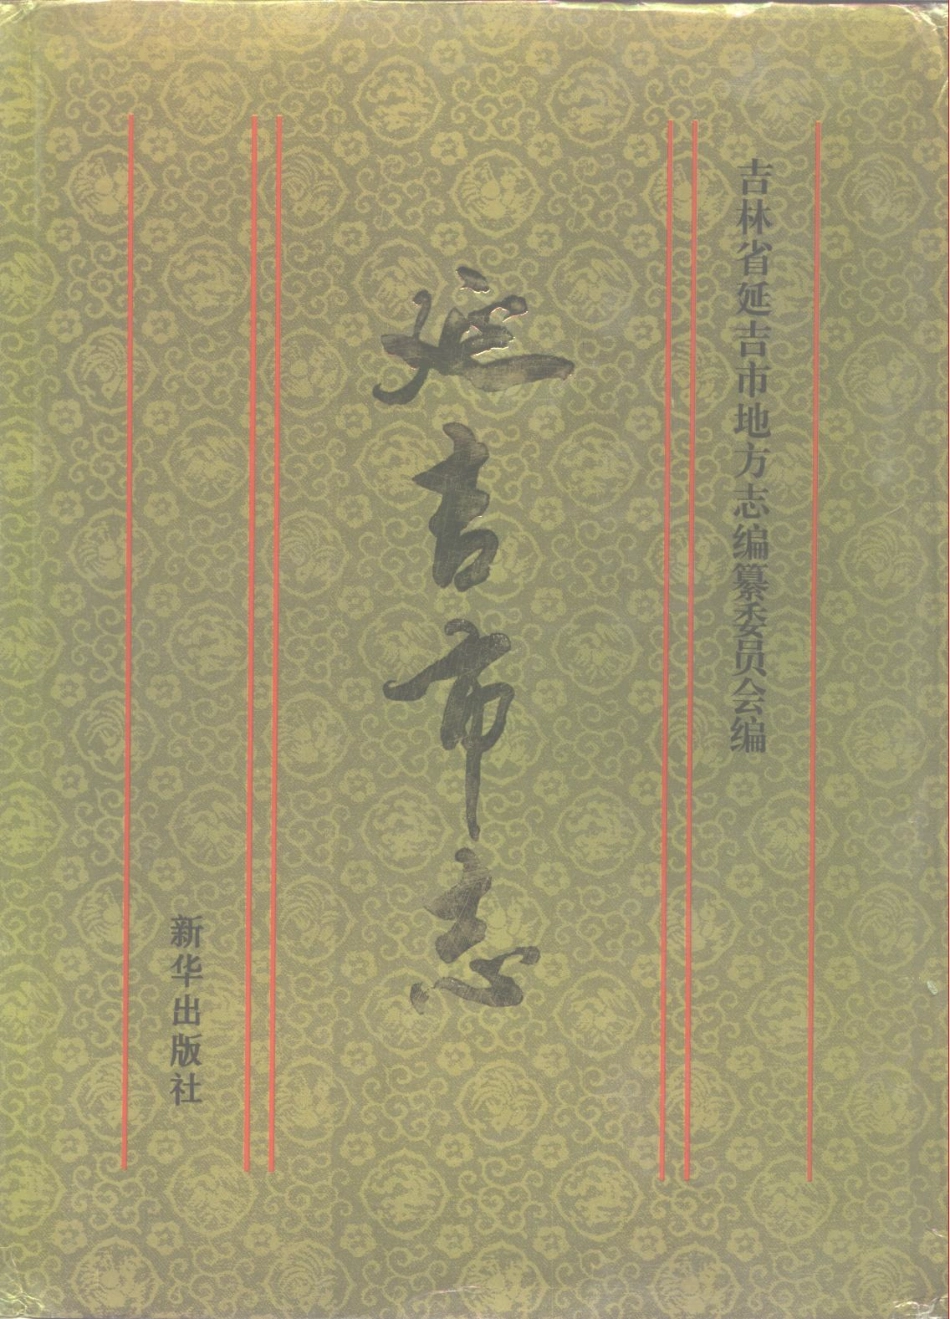 吉林省延吉市地方志编纂委员会编
延吉市志
新华出版社